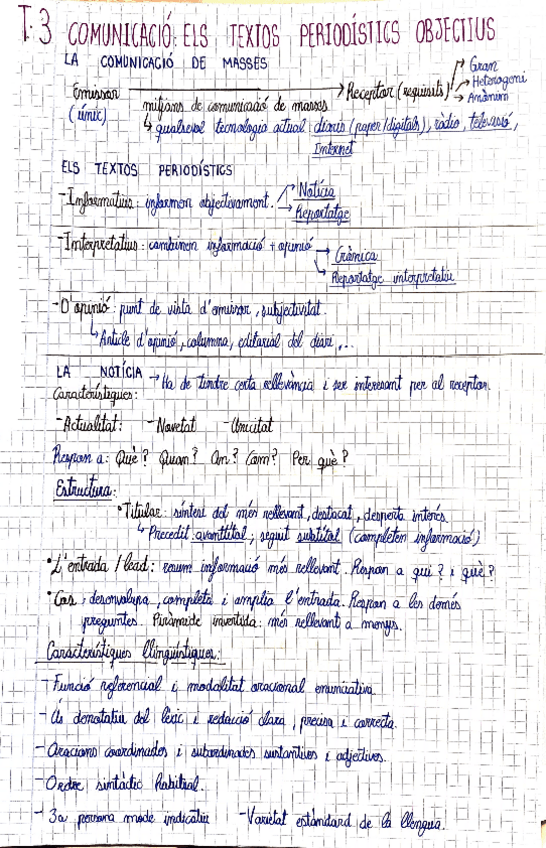 T.3 COMUNICACIÓ: ELS TEXTOS PERIODÍSTICS OBJECTIUS
LA COMUNICACIÓ DE MASSES
Emissor → Receptor (requisits) → Gran
(únic) → Heterogeni
→ Anònim
mitjans de comunicació de masses
↳ qualsevol tecnologia actual: diaris (paper/digitals), ràdio, televisió,
Internet
ELS TEXTOS PERIODÍSTICS
- Informatius: informen objectivament. → Notícia
→ Reportatge
- Interpretatius: combinen informació + opinió → Crònica
→ Reportatge interpretatiu
- D'opinió: punt de vista d'emissor, subjectivitat.
↳ Article d'opinió, columna, editorial del diari,...
LA NOTÍCIA → Ha de tindre certa rellevància i ser interesant per al receptor.
Característiques:
- Actualitat: - Novetat - Unicitat
Respon a: Què? Quan? On? Com? Per què?
Estructura:
• Titular: síntesi del més rellevant, destacat, desperta interés.
↳ Precedit: avantítol; seguit subtítol (completen informació)
• L'entrada / lead: resum informació més rellevant. Respon a qui? i què?
• Cos: desenvolupa, completa i amplia l'entrada. Respon a les demés
preguntes. Piràmide invertida: més rellevant a menys.
Característiques llingüístiques:
- Funció referencial i modalitat oracional enunciativa.
- Ús denotatiu del lèxic i redacció clara, precisa i correcta.
- Oracions coordinades i subordinades sustantives i adjectives.
- Ordre sintàctic habitual.
- 3a persona mode indicatiu - Varietat estàndard de la llengua.